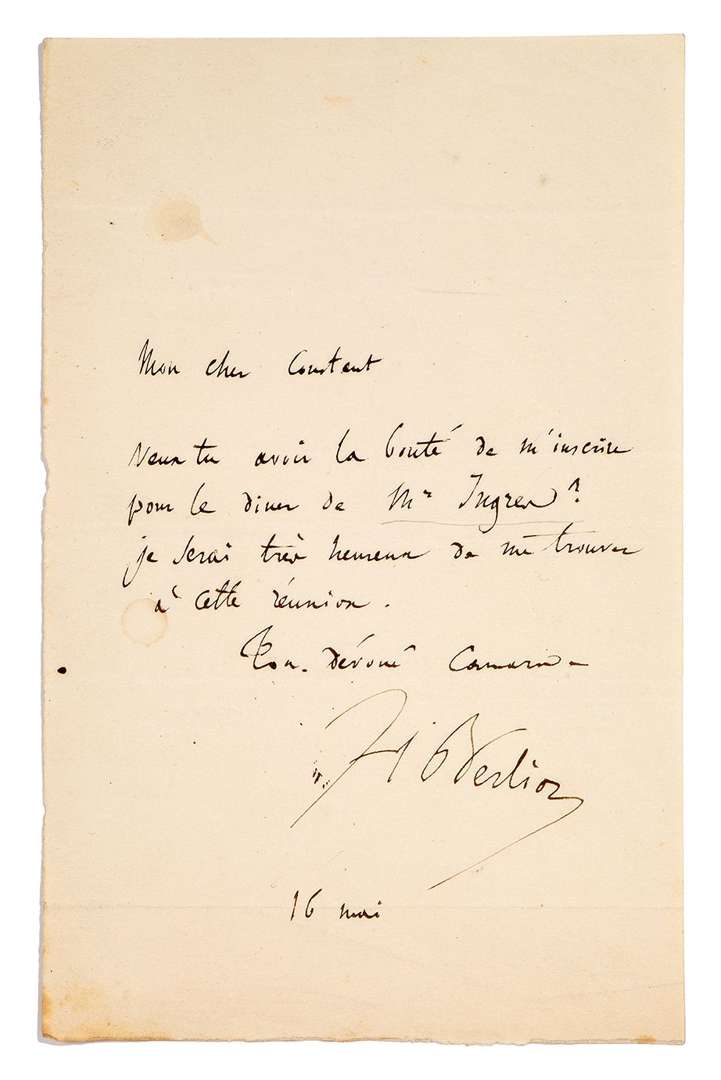 Mon cher Constant
Veux tu avoir la bonté de m'inscrire
pour le diner de Mr Ingres?
je serai très heureux de me trouver
à cette réunion.
Ton dévoué
H Berlioz
16 mai